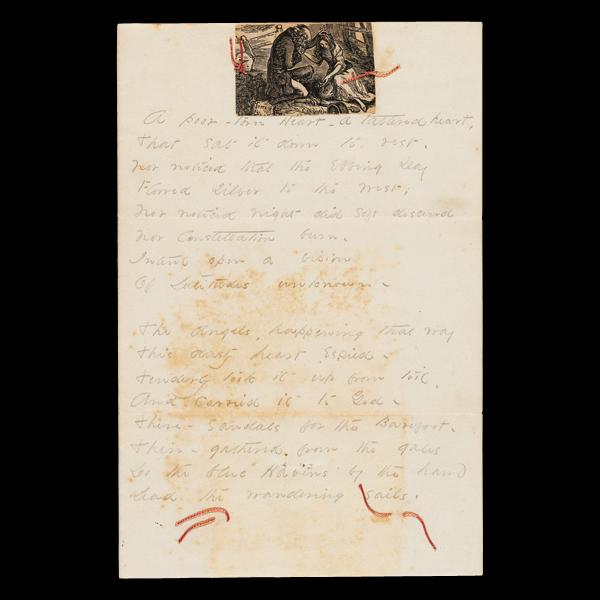 A poor - torn Heart - a tattered heart,
That sat it down to rest -
Nor noticed that the Ebbing Day
Flowed Silver to the West;
Nor noticed night did soft descend
Nor Constellation burn -
Intent upon a vision
Of Latitudes unknown -
The Angels, happening that way
This dusty heart Espied -
Tenderly took it up from toil,
And carried it to God -
There - Sandals for the Barefoot -
There - gathered from the gales
Do the blue Havens by the hand
Lead the wandering Sails.